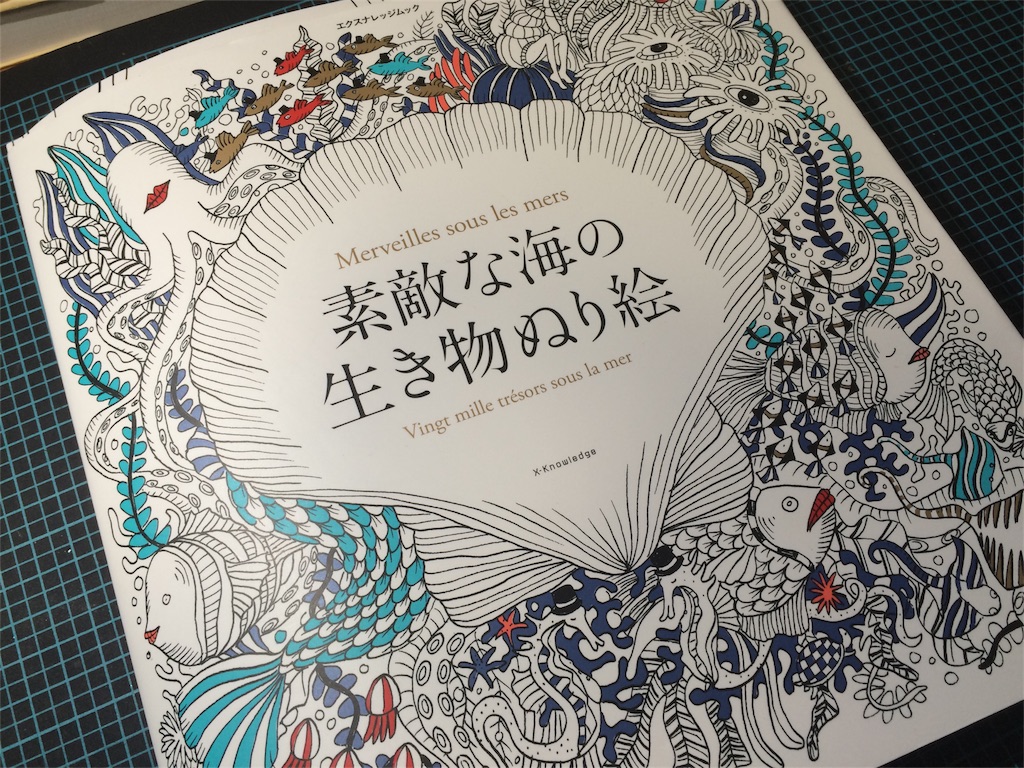 エクスナレッジムック
Merveilles sous les mers
素敵な海の
生き物ぬり絵
Vingt mille trésors sous la mer
X-Knowledge